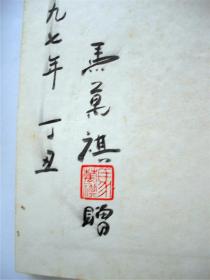 馬萬祺贈
九七年丁丑